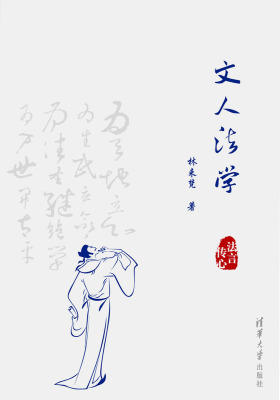 文人法学
林来梵 著
法言
传心
清华大学出版社
为天地立心
为生民立命
为往圣继绝学
为万世开太平